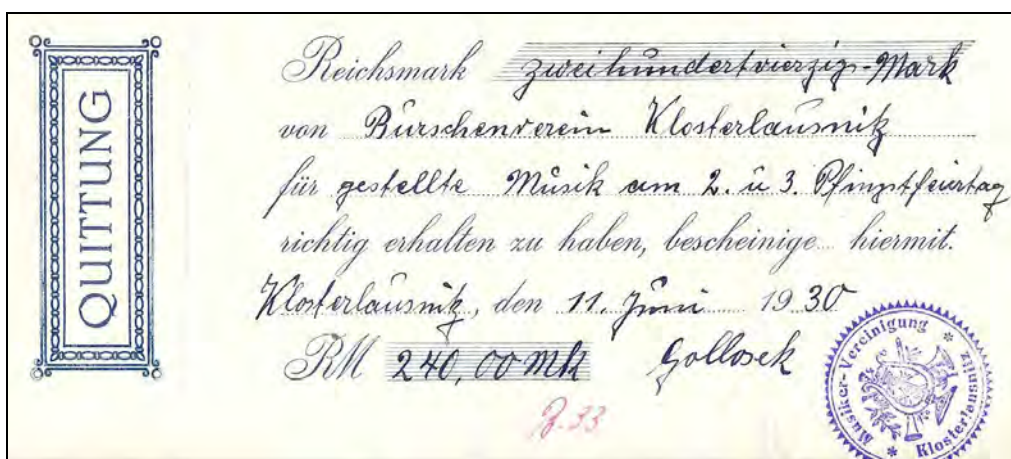 QUITTUNG
Reichsmark zweihundertvierzig-Mark
von Burschenverein Klosterlausnitz
für gestellte Musik am 2. u 3. Pfingstfeiertag
richtig erhalten zu haben, bescheinige hiermit.
Klosterlausnitz, den 11. Juni 1930
RM 240,00 Mk Gollosek
Musiker-Vereinigung * Klosterlausnitz *